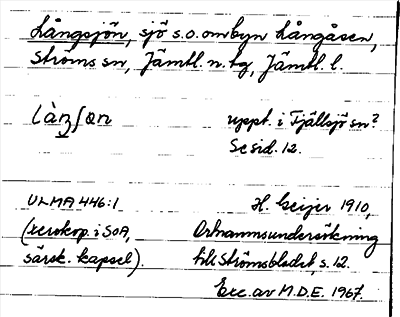 Långsjön, sjö s.o. om byn Långåsen,
Ströms sn, Jämtl. n. tg, Jämtl. l.
uppt. i Fjällsjö sn?
Se sid. 12.
ULMA 446:1 H. Geijer 1910,
(xerokop. i SOA, Ortnamnsundersökning
särsk. kapsel). till Strömsbladet, s. 12.
Exc. av M.D.E. 1967.